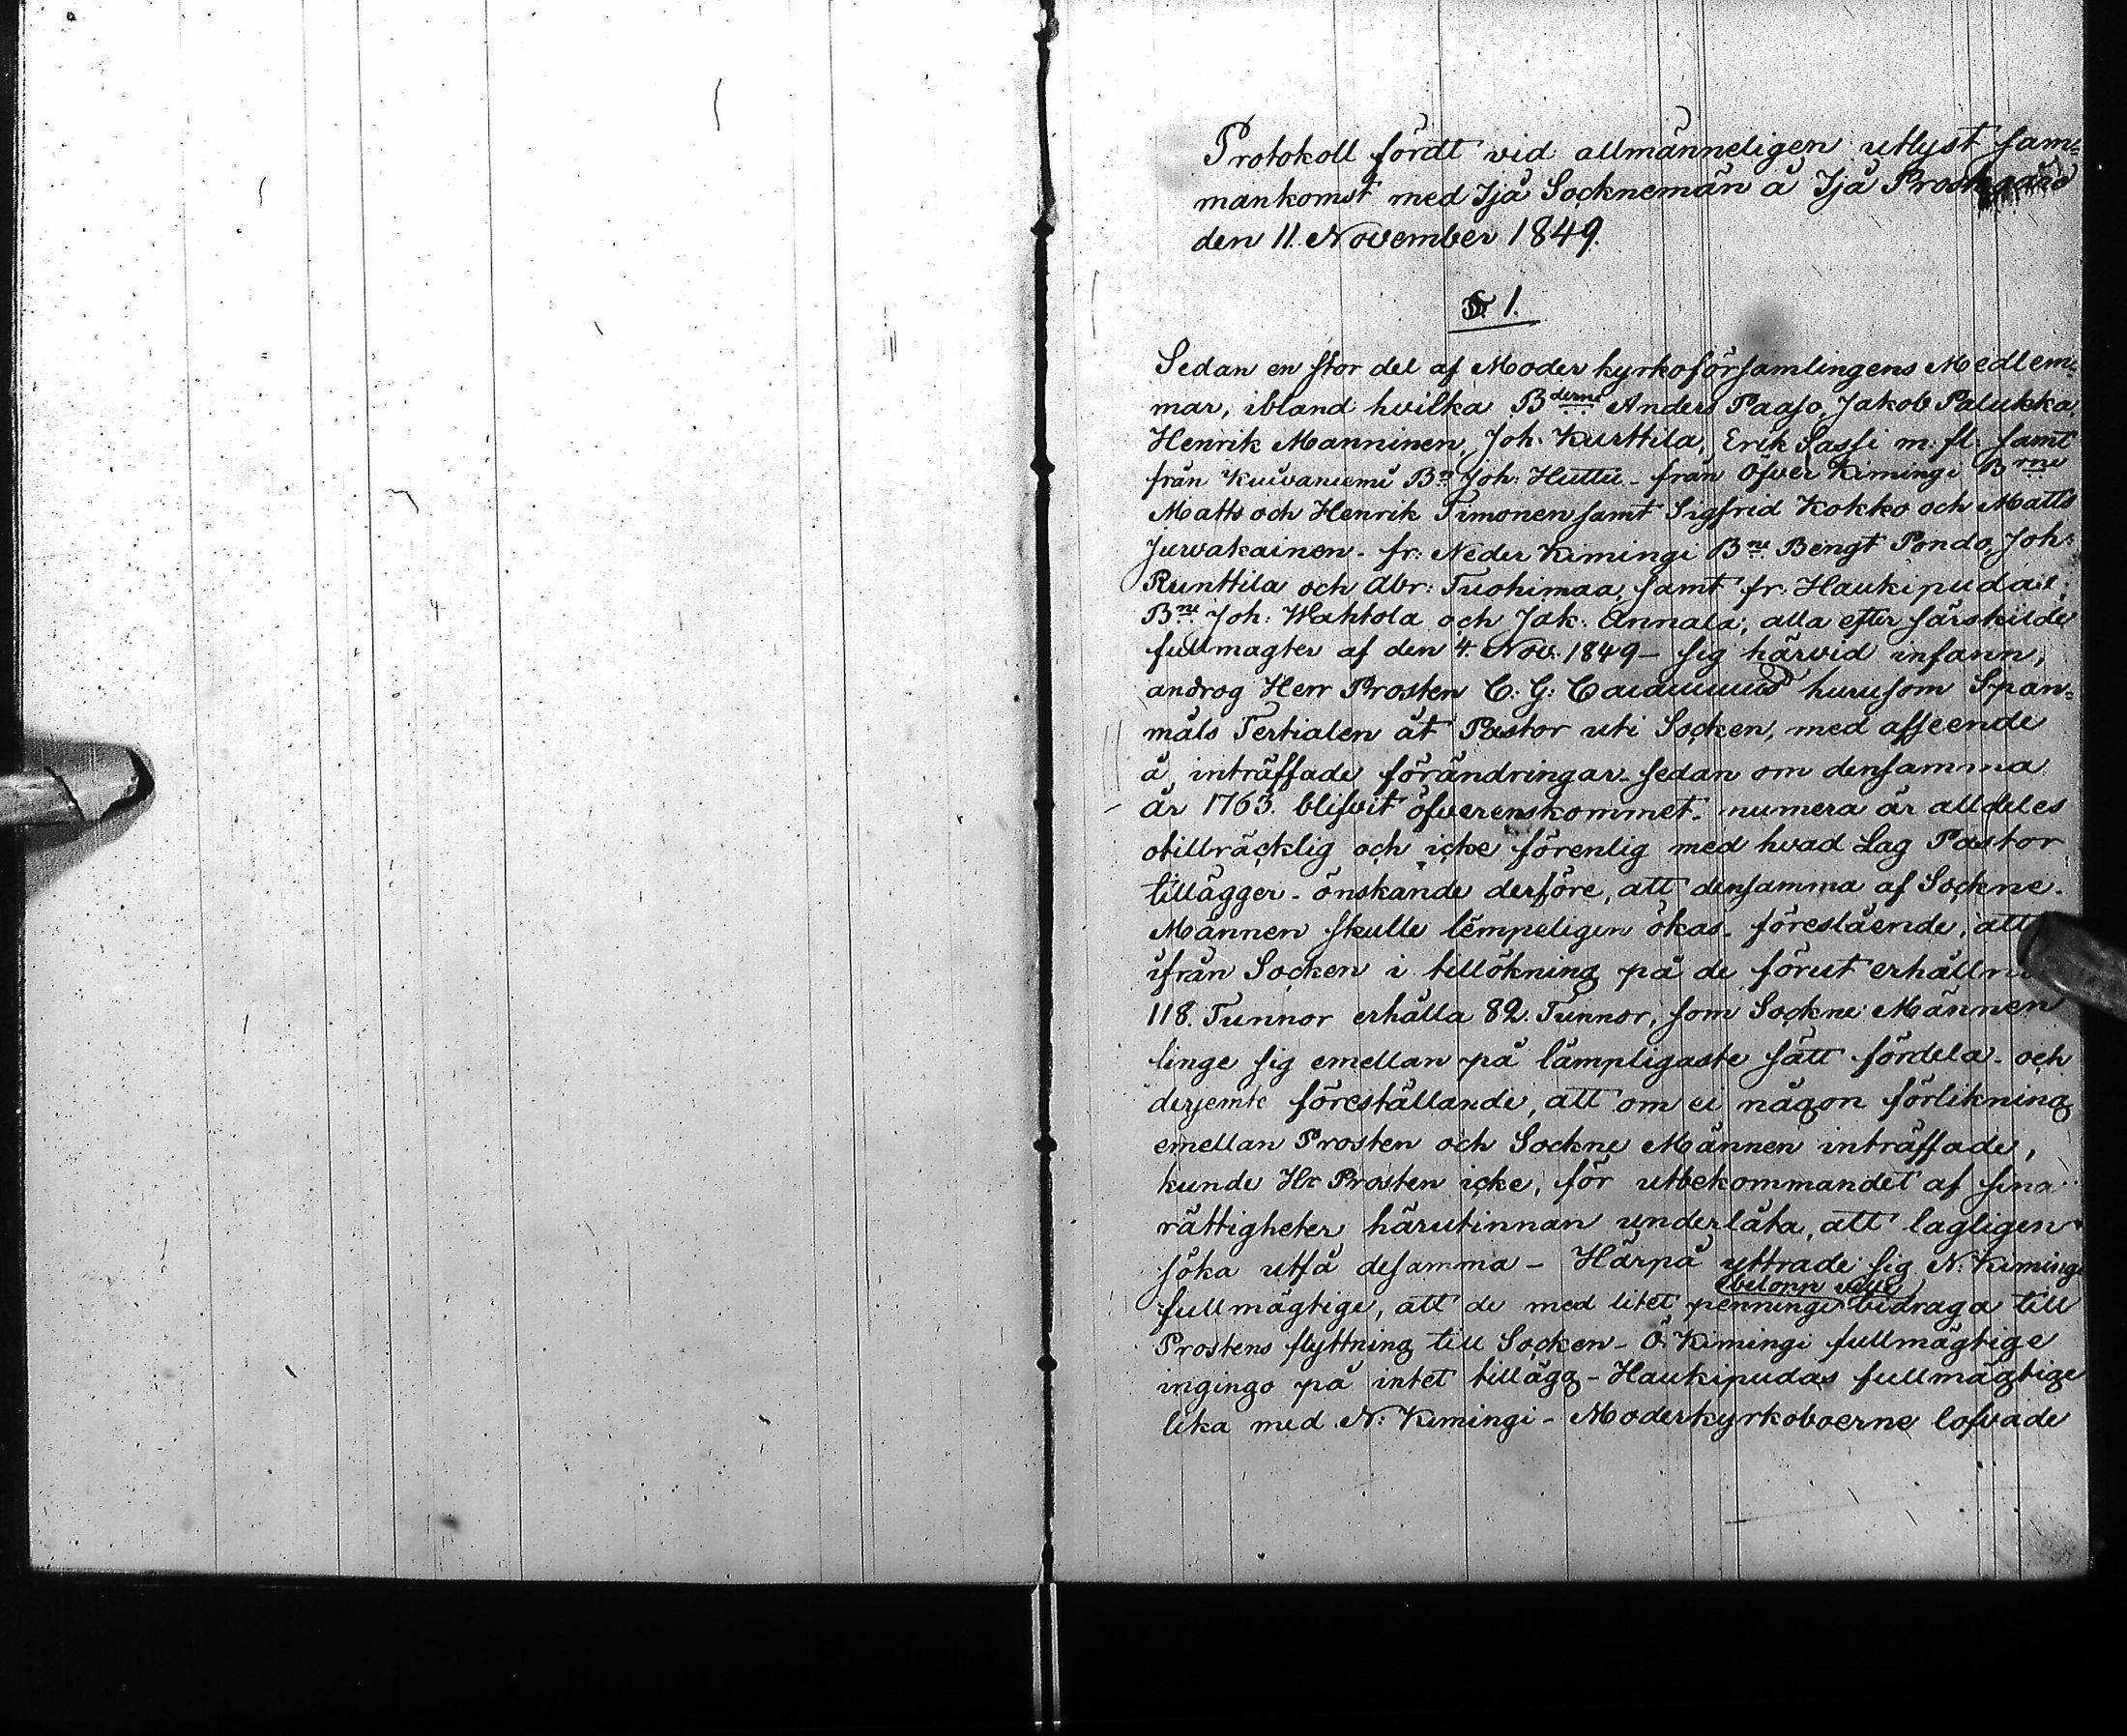 Protokoll fördt vid allmänneligen utlyst sam=
mankomst med Ijå Socknemän å Ijå Prostgård
den 11. November 1849.
§ 1.
Sedan en stor del af Moder kyrkoförsamlingens Medlem=
mar, ibland hvilka Bderne Anders Paaso, Jakob Palukka,
Henrik Manninen, Joh: Kurttila, Erik Sassi m. fl. samt
från Kuivaniemi Bn Joh: Huttu - från Öfver Kimingi Brne
Matts och Henrik Timonen samt Sigfrid Kokko och Matts
Jurvakainen - fr: Neder Kimingi Bne Bengt Pondo, Joh:
Runttila och Abr: Tuohimaa, samt fr: Haukipudas,
Bne Joh: Wahtola och Jak: Annala; alla efter särskilde
fullmagter af den 4. Nov. 1849 - sig härvid infann,
androg Herr Prosten C: G: huru som Span=
måls Tertialen åt Pastor uti Socken, med afseende
å inträffade förändringar - sedan om densamma
år 1763. blifvit öfverenskommet - numera är alldeles
otillräcklig och icke förenlig med hvad Lag Pastor
tillägger - önskande derföre, att densamma af Sockne-
Männen skulle lempeligen ökas - föreslående, att
ifrån Socken i tillökning på de förut erhållne
118. Tunnor erhålla 82. Tunnor, som Sockne Männen
linge sig emellan på lämpligaste sätt fördela - och
derjemte föreställande, att om ei någon förlikning
emellan Prosten och Sockne Männen inträffade,
kunde Hr Prosten icke, för utbekommandet af sina
rättigheter härutinnan underlåta, att lagligen
söka utfå desamma - Härpå yttrade sig N: Kimingi
fullmägtige, att de med litet penninge belopp bidraga till
Prostens flyttning till Socken - Ö. Kimingi fullmägtige
ingingo på intet tillägg - Haukipudas fullmägtige
lika med N: Kimingi - Moderkyrkoboerne lofvade